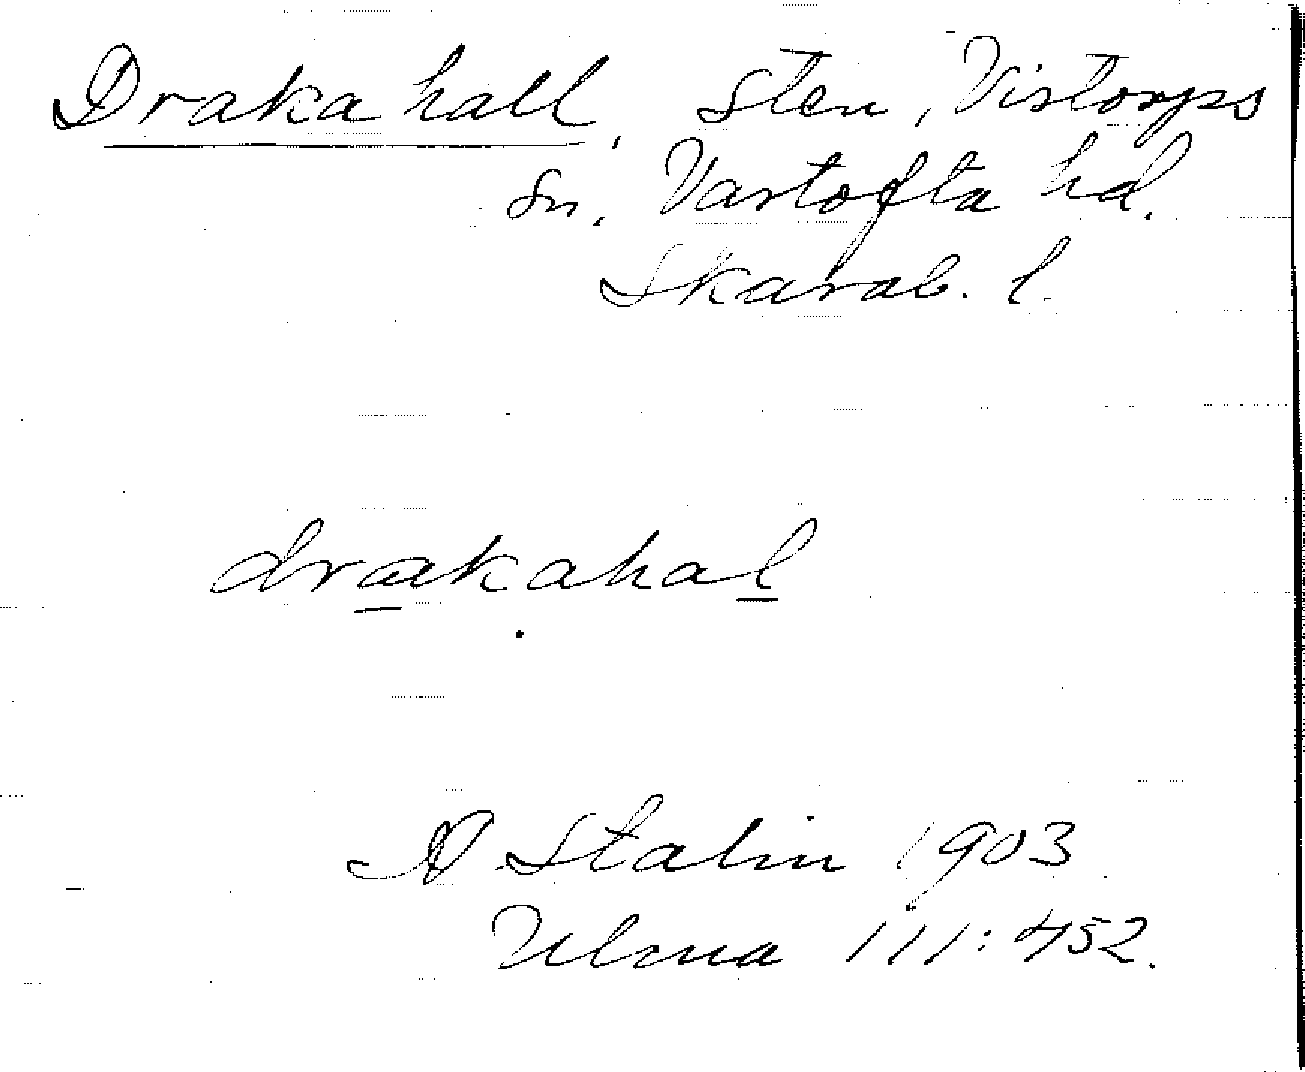 Draka hall, sten, Vistorps
sn, Vartofta hd.
Skarab. l.
drakahal
Stalin 1903
Ulma 111:452.